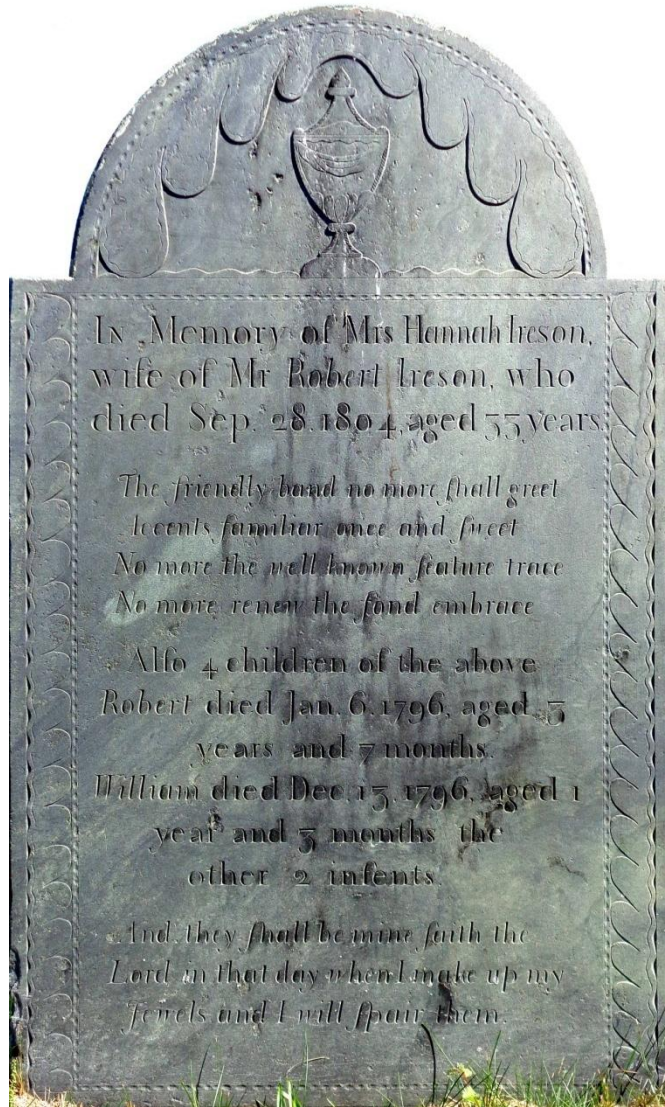 In Memory of Mrs Hannah Ireson,
wife of Mr Robert Ireson, who
died Sep. 28. 1804, aged 33 years.
The friendly band no more ſhall greet
Accents familiar once and ſweet
No more the well known feature trace
No more renew the fond embrace
Alſo 4 children of the above
Robert died Jan. 6. 1796, aged 3
years and 7 months.
William died Dec. 13. 1796, aged 1
year and 3 months the
other 2 infents.
And they ſhall be mine ſaith the
Lord in that day when I make up my
Jewels and I will ſpair them.